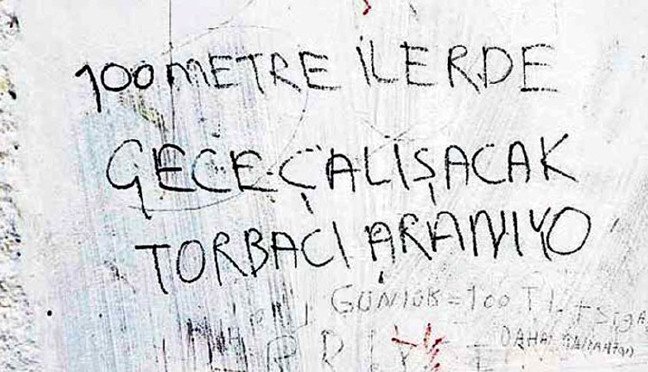 100 METRE İLERDE
GECE ÇALIŞACAK
TORBACI ARANIYO
GÜNLÜK = 100 TL. + SİGA
DAHA